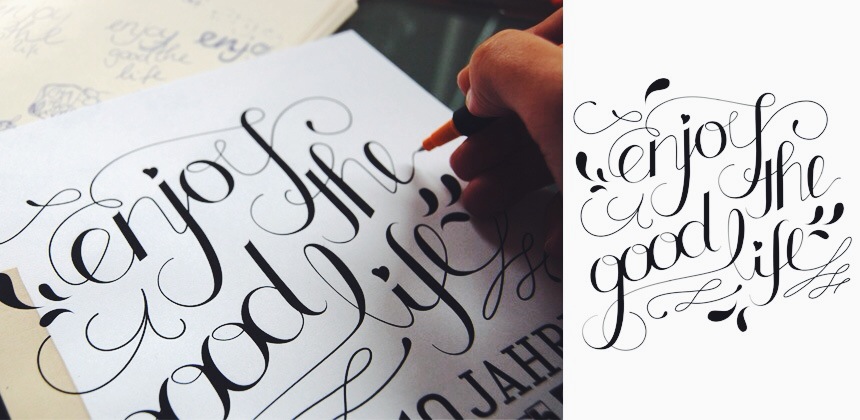 the
life
enjoy
good the
life
enjo
enjoy
the
good
life
10 JAHR
enjoy
the
good
life